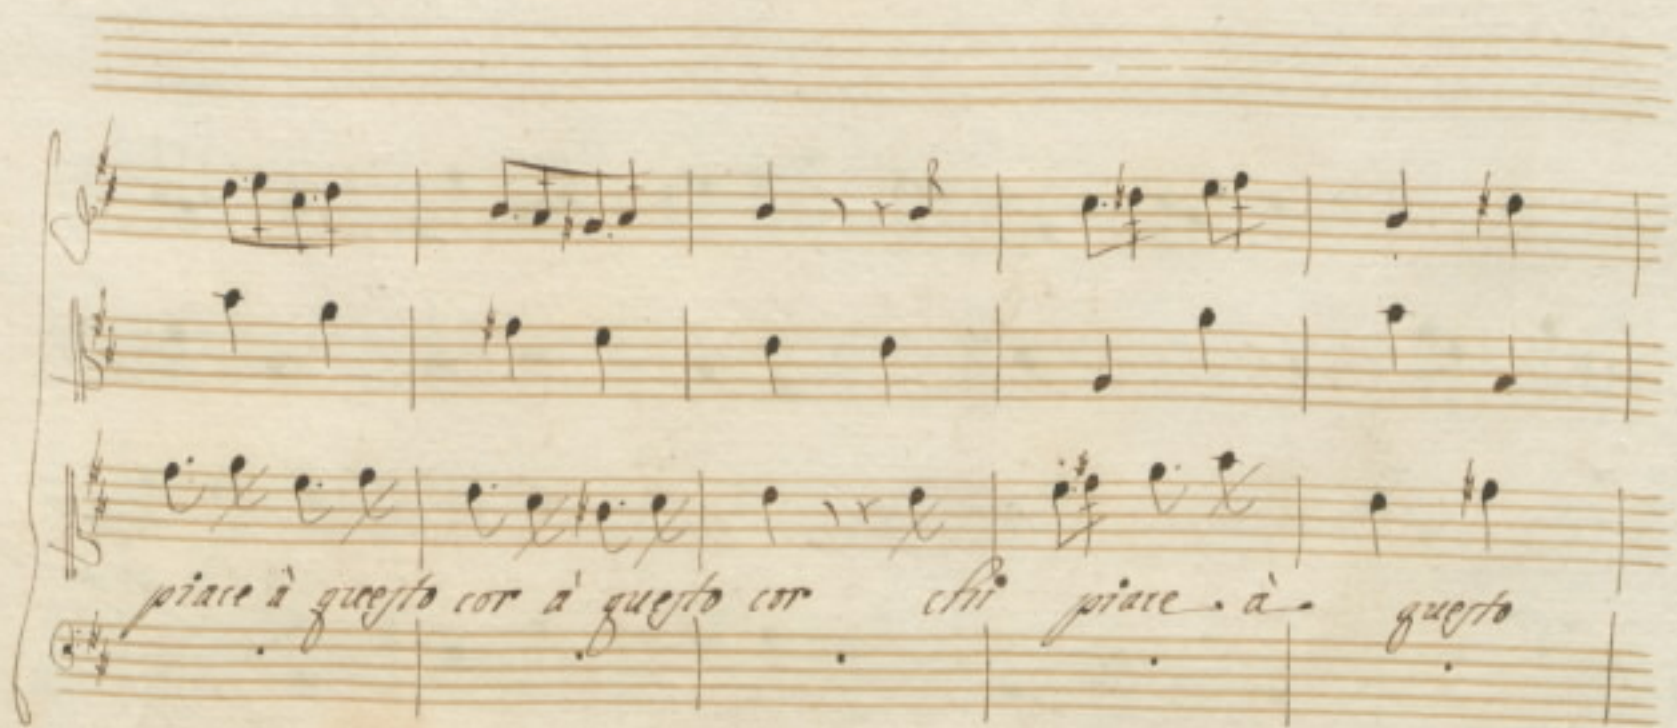 piace à questo cor à questo cor chi piace à questo